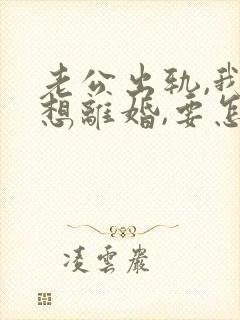 老公出轨,我
想離婚,要怎
凌雲嚴